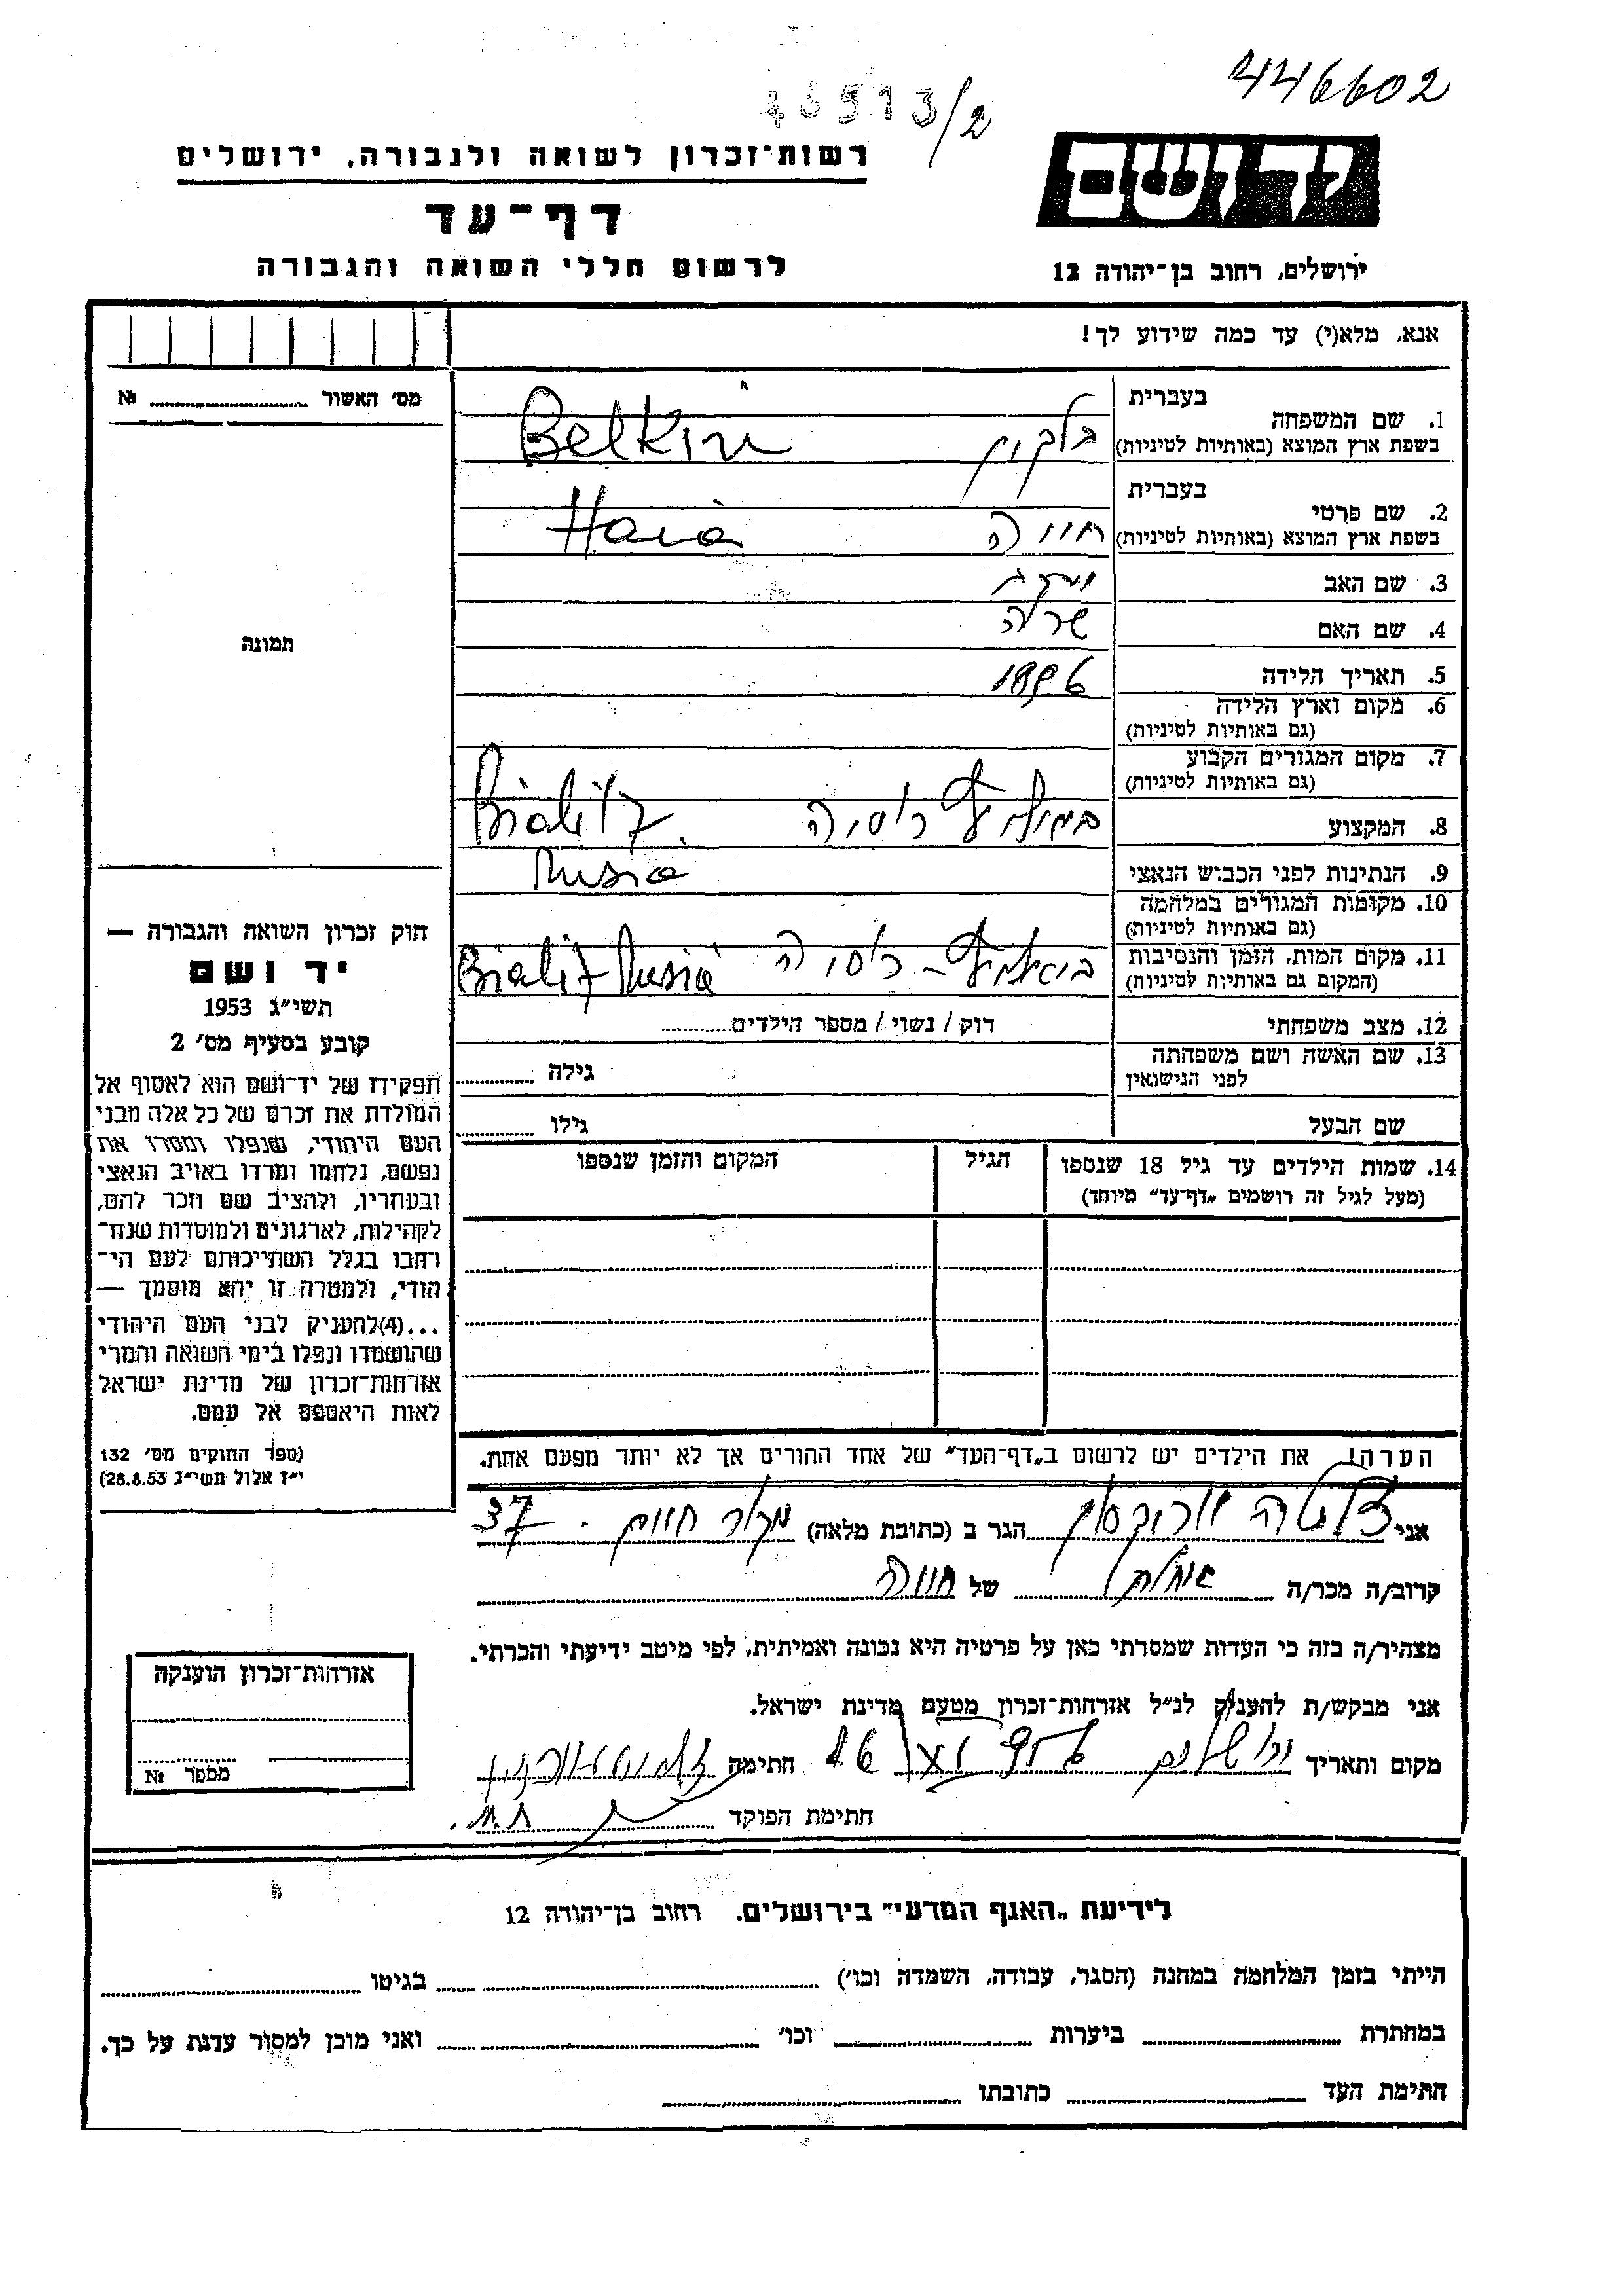 446602
46513/2
יד ושם
רשות־זכרון לשואה ולגבורה, ירושלים
דף־עד
לרשום חללי השואה והגבורה
ירושלים, רחוב בן־יהודה 12
אנא, מלא(י) עד כמה שידוע לך!
מס׳ האשור № 
בעברית
1. שם המשפחה
בשפת ארץ המוצא (באותיות לטיניות)
בלקין Belkin
בעברית
2. שם פרטי
בשפת ארץ המוצא (באותיות לטיניות)
חייה Haia
3. שם האב
4. שם האם שרה
תמונה
5. תאריך הלידה 1896
6. מקום וארץ הלידה
(גם באותיות לטיניות)
7. מקום המגורים הקבוע
(גם באותיות לטיניות)
רוסיה Bialitz
8. המקצוע
9. הנתינות לפני הכבוש הנאצי Rusia
10. מקומות המגורים במלחמה
(גם באותיות לטיניות)
11. מקום המות, הזמן והנסיבות
(המקום גם באותיות לטיניות)
רוסיה Bialitz Rusia
12. מצב משפחתי רוק / נשוי / מספר הילדים
13. שם האשה ושם משפחתה
לפני הנישואין
גילה
שם הבעל גילו
14. שמות הילדים עד גיל 18 שנספו
(מעל לגיל זה רושמים „דף־עד״ מיוחד)
הגיל
המקום והזמן שנספו
חוק זכרון השואה והגבורה —
יד ושם
תשי״ג 1953
קובע בסעיף מס׳ 2
תפקידו של יד־ושם הוא לאסוף אל
המולדת את זכרם של כל אלה מבני
העם היהודי, שנפלו ומסרו את
נפשם, נלחמו ומרדו באויב הנאצי
ובעוזריו, ולהציב שם וזכר להם,
לקהילות, לארגונים ולמוסדות שנח־
רחבו בגלל השתייכותם לעם הי־
הודי, ולמטרה זו יהא מוסמך —
...(4)להעניק לבני העם היהודי
שהושמדו ונפלו בימי השואה והמרי
אזרחות־זכרון של מדינת ישראל
לאות היאספם אל עמם.
(ספר החוקים מס׳ 132
י״ז אלול תשי״ג 28.8.53)
הערה! את הילדים יש לרשום ב„דף־העד״ של אחד ההורים אך לא יותר מפעם אחת.
אני הגר ב (כתובת מלאה) מקור חיים 37
קרוב/ה מכר/ה של חייה
מצהיר/ה בזה כי העדות שמסרתי כאן על פרטיה היא נכונה ואמיתית, לפי מיטב ידיעתי והכרתי.
אני מבקש/ת להעניק לנ״ל אזרחות־זכרון מטעם מדינת ישראל.
מקום ותאריך ירושלים חתימה
חתימת הפוקד
אזרחות־זכרון הוענקה
מספר №
לידיעת „האגף המדעי״ בירושלים, רחוב בן־יהודה 12
הייתי בזמן המלחמה במחנה (הסגר, עבודה, השמדה וכו׳) בגיטו
במחתרת ביערות וכו׳ ואני מוכן למסור עדות על כך.
חתימת העד כתובתו